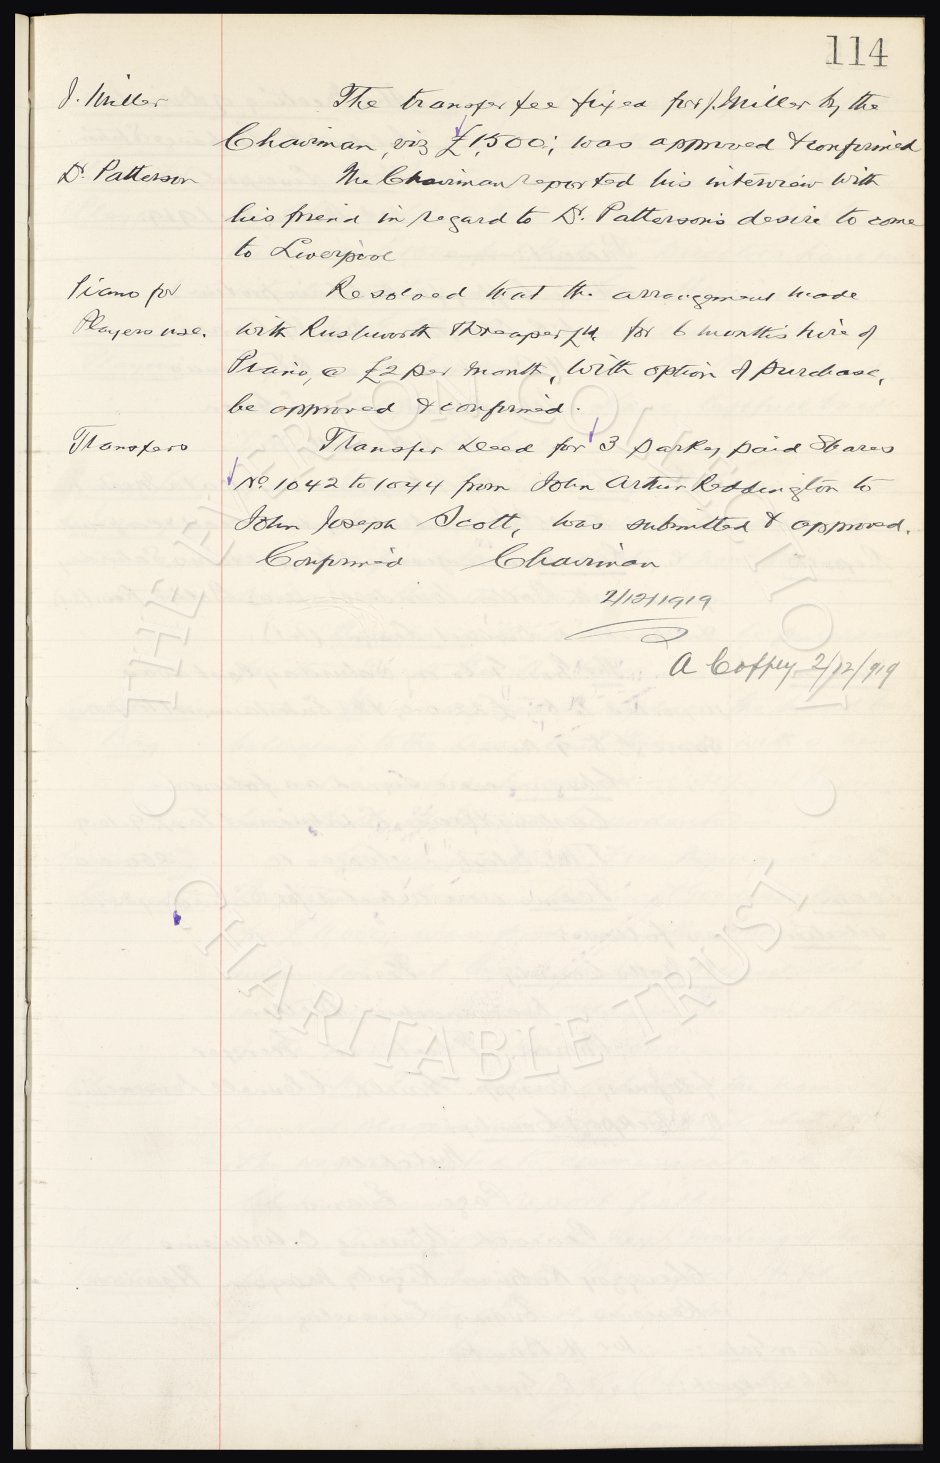 114
J. Miller
The transfer fee fixed for J. Miller by the
Chairman, viz £1,500; was approved & confirmed
Dr. Patterson
The Chairman reported his interview with
his friend in regard to Dr. Patterson's desire to come
to Liverpool
Piano for
Players use.
Resolved that the arrangement made
with Rushworth & Dreaper Ltd. for 6 months hire of
Piano, @ £2 per month, with option of purchase,
be approved & confirmed.
Transfers
Transfer Deed for 3 partly paid Shares
No. 1042 to 1044 from John Arthur Reddington to
John Joseph Scott, was submitted & approved.
Confirmed Chairman
2/12/1919
A Coffey 2/12/919
THE EVERTON COLLECTION
CHARITABLE TRUST